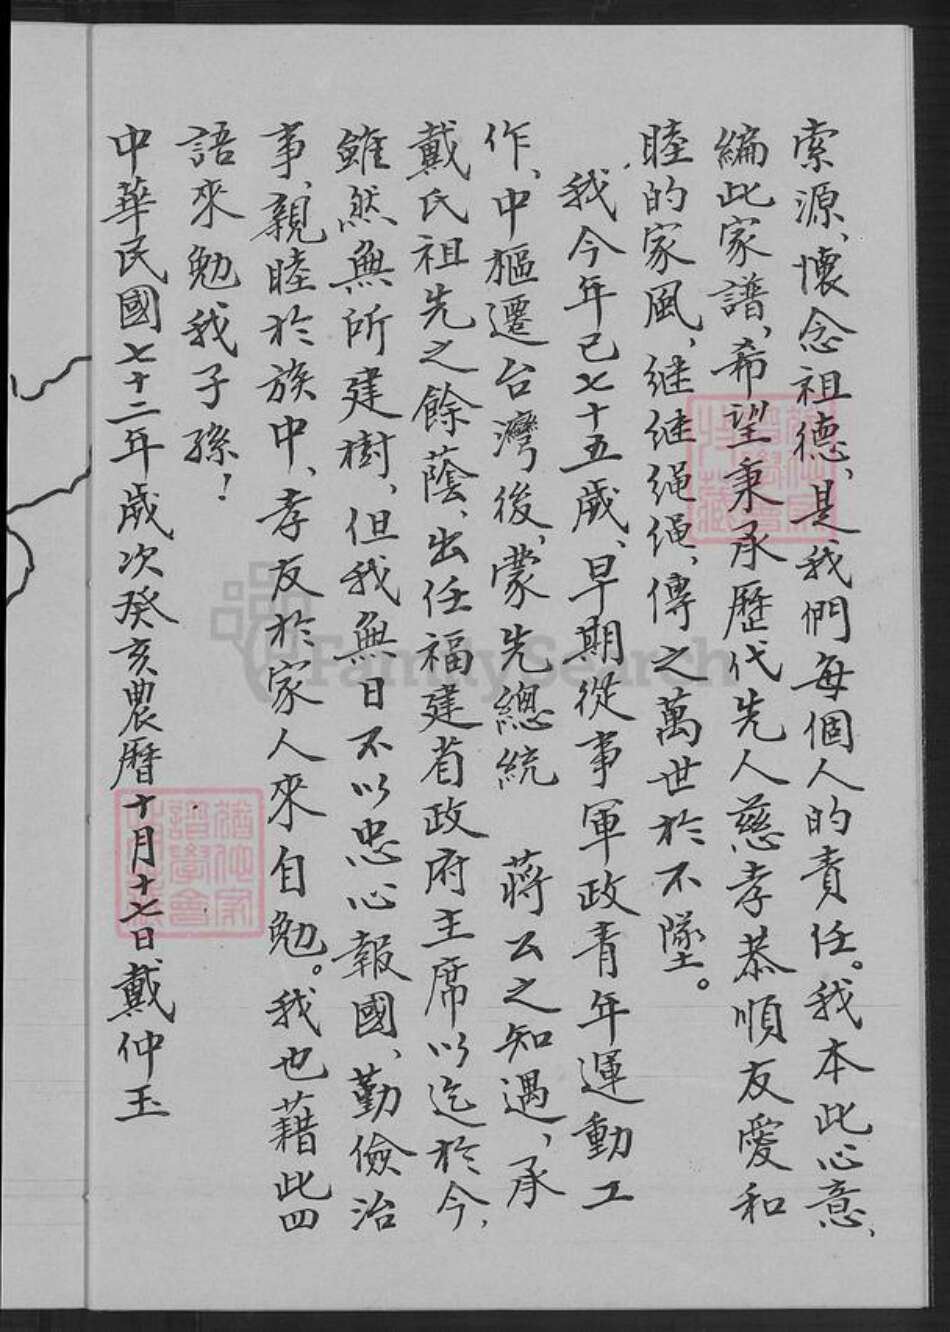 索源、懷念祖德、是我們每個人的責任。我本此心意、
編此家譜、希望秉承歷代先人慈孝恭順友愛和
睦的家風、继继绳绳、傳之萬世於不墜。
我今年已七十五歲、早期從事軍政青年運動工
作、中樞遷台灣後、蒙先總統 蔣公之知遇、承
戴氏祖先之餘蔭、出任福建省政府主席以迄於今、
雖然無所建樹、但我無日不以忠心報國、勤儉治
事、親睦於族中、孝友於家人來自勉。我也藉此四
語來勉我子孫!
中華民國七十二年歲次癸亥農曆十月十七日戴仲玉
FamilySearch